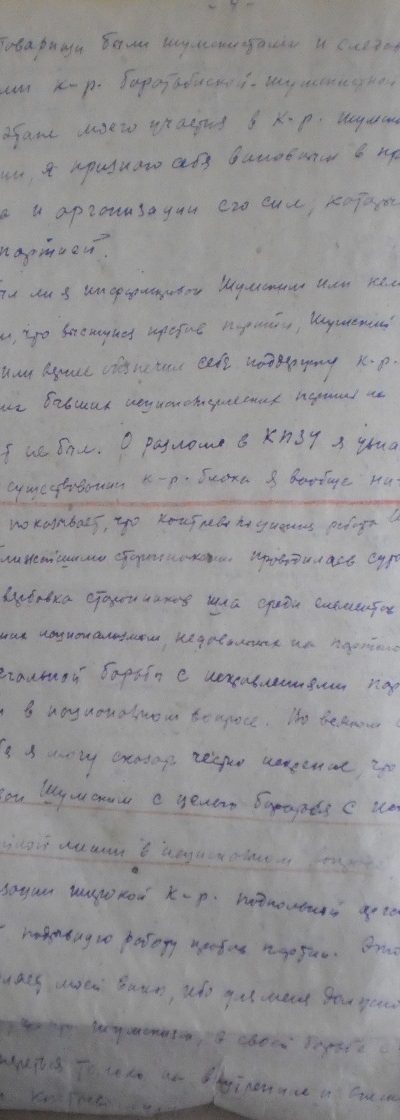 - 4 -
товарищи были шумскистами и следов
ми к-р. боротьбистской-шумскистской
этапе моего участия в к-р. шумск
ии, я признаю себя виновным в пр
а и организации его сил, которы
партией".
ыл ли я информирован Шумским или кем
и, что выступая против партии, Шумский
или вернее обеспечил себе поддержку к-р.
их бывших националистических партий на
не был. О расколе в КПЗУ я узна
существовании к-р. блока я вообще ни
показывает, что контрреволюционная работа Ш
ближайшими сторонниками проводилась
вербовка сторонников шла среди элементов
ных национализмом, недовольных на партию
легальной борьбы с исправлениями пар
и в национальном вопросе. Во всяком с
бе я могу сказать честно искренне, что
ван Шумским с целью бороться с
линии в национальном вопросе
зации широкой к-р. подпольной орга
подрывную работу против партии. Это
моей вины, ибо для меня должно
шумскизм, в своей борьбе с
только на внутренние и